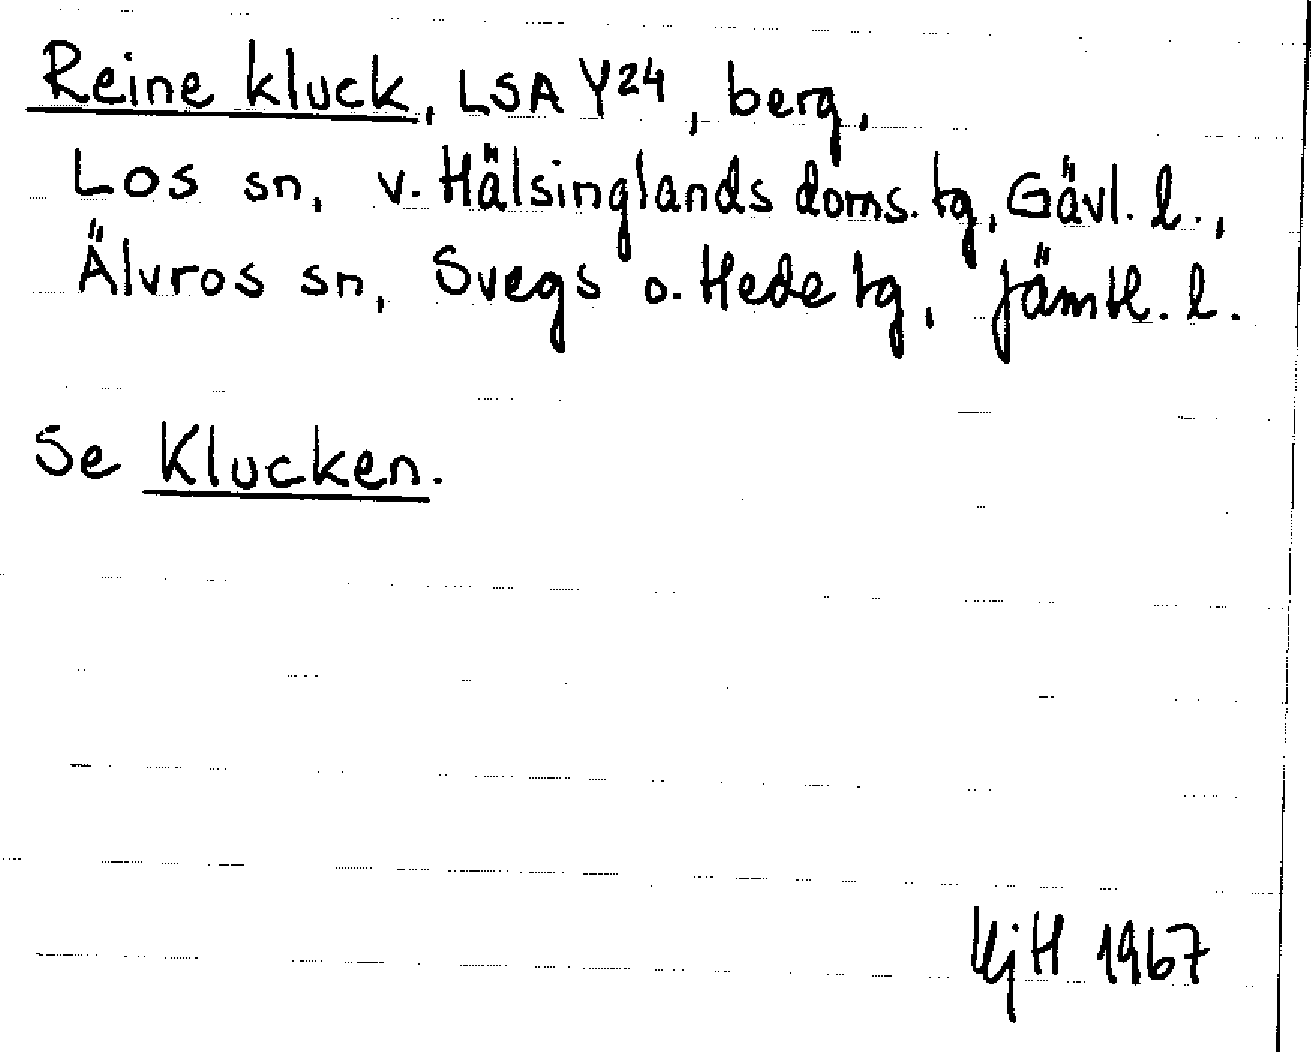 Reine kluck, LSA Y24, berg,
Los sn, v. Hälsinglands doms. tg, Gävl. l.,
Älvros sn, Svegs o. Hede tg, Jämtl. l.
Se Klucken.
KjH 1967